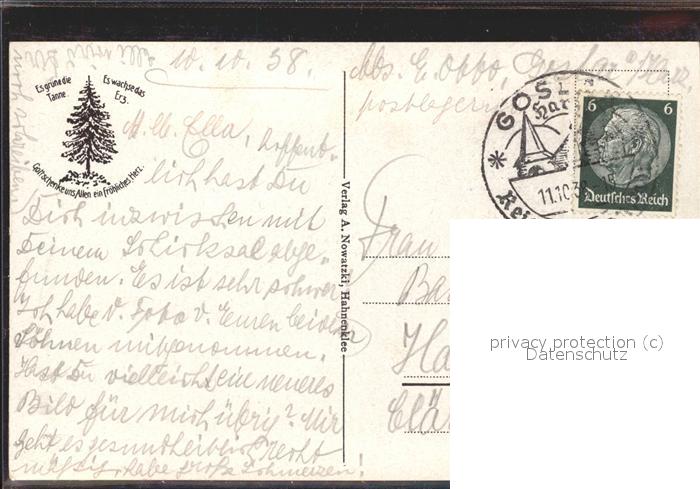 10.10.38.
Abs. E. Obbo, Goslar a/Harz,
postlagernd
Es grüne die
Tanne.
Es wachse das
Erz.
Gott schenke uns Allen ein Fröhliches Herz.
GOSL
Har
11.10.3
Rei
6 6
Deutsches Reich
M. lb. Ella, hoffent-
lich hast Du
Dich inzwischen mit
Deinem Schicksal abge-
funden. Es ist sehr schwer
Ich habe d. Foto v. Euren beiden
Söhnen mitgenommen.
Hast Du vielleicht ein neueres
Bild für mich übrig? Mir
geht es gesundheitlich recht
mäßig, habe große Schmerzen!
noch schreiben
Verlag A. Nowatzki, Hahnenklee
Frau
Ba
Ha
Clä
privacy protection (c)
Datenschutz